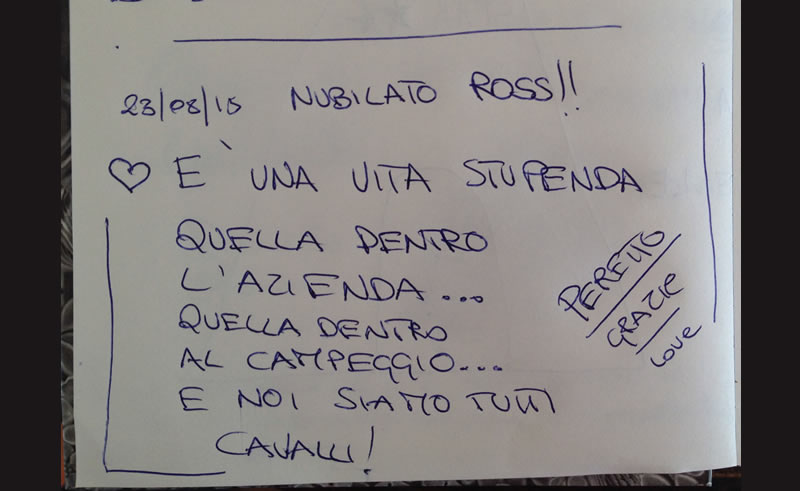 23/08/15 NUBILATO ROSS!!
♡ E` UNA VITA STUPENDA
QUELLA DENTRO
L'AZIENDA...
QUELLA DENTRO
AL CAMPEGGIO...
E NOI SIAMO TUTTI
CAVALLI!
GRAZIE
LOVE